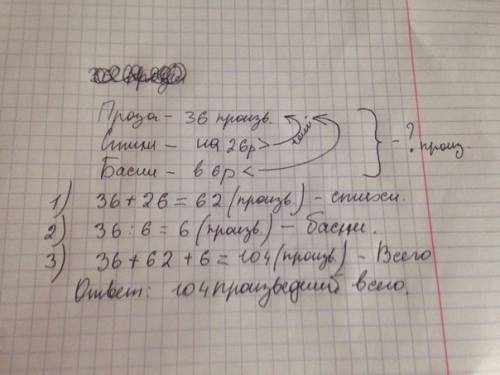 Проза - 36 произв.
Стихи - на 26р > чем
Басни - в 6р <
- ? произ.
1) 36 + 26 = 62 (произв.) - стихи.
2) 36 : 6 = 6 (произв.) - басни.
3) 36 + 62 + 6 = 104 (произв.) - Всего
Ответ: 104 произведший всего.